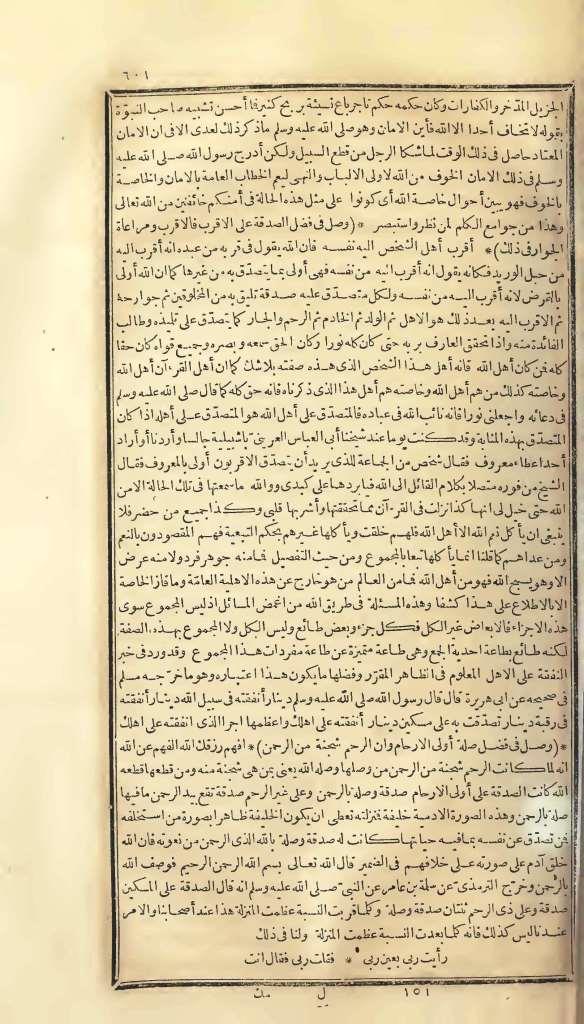 ٦٠١
الجزيل المدخر والكفارات وكان حكمه حكم تاجر باع نسيئة بربح كثير فما أحسن تشبيه صاحب النبوّة
بقوله لا تخاف أحدا الا الله فأين الامان وهو صلى الله عليه وسلم ما ذكر ذلك لعدى الا فى ان الامان
المعتاد حاصل فى ذلك الوقت لما شكا الرجل من قطع السبيل ولكن أدرج رسول الله صلى الله عليه
وسلم فى ذلك الامان الخوف من الله لاولى الالباب والنهى ليعم الخطاب العامة بالامان والخاصة
بالخوف فهو يبين أحوال خاصة الله أى كونوا على مثل هذه الحالة فى أمنكم خائفين من الله تعالى
وهذا من جوامع الكلم لمن نظر واستبصر * (وصل فى فضل الصدقة على الاقرب فالاقرب ومراعاة
الجوار فى ذلك) * أقرب أهل الشخص اليه نفسه فان الله يقول فى قربه من عبده انه أقرب اليه
من حبل الوريد فكأنه يقول انه أقرب اليه من نفسه فهى أولى بما يتصدّق به من غيرها كما ان الله أولى
بالقرض لانه أقرب اليه من نفسه ولكل متصدّق عليه صدقة تليق به من المخلوقين ثم جوارحه
ثم الاقرب اليه بعد ذلك هو الاهل ثم الولد ثم الخادم ثم الرحم والجار كما يتصدّق على تلميذه وطالب
الفائدة منه واذا تحقق العارف بربه حتى كان كله نورا وكان الحق سمعه وبصره وجميع قواه كان حقا
كله فمن كان أهل الله فانه أهل هذا الشخص الذى هذه صفته بلا شك كما ان أهل القرءآن أهل الله
وخاصته كذلك من هم أهل الله وخاصته هم أهل هذا الذى ذكرناه فانه حق كله كما قال صلى الله عليه وسلم
فى دعائه واجعلنى نورا فانه نائب الله فى عباده فالمتصدّق على أهل الله هو المتصدّق على أهله اذا كان
المتصدّق بهذه المثابة وقد كنت يوما عند شيخنا أبى العباس العرينى باشبيلية جالسا وأردنا أو أراد
أحد اعطاء معروف فقال شخص من الجماعة للذى يريد أن يتصدّق الاقربون أولى بالمعروف فقال
الشيخ من فوره متصلا بكلام القائل الى الله فيا بردها على كبدى ووالله ما سمعتها فى تلك الحالة الا من
الله حتى خيل لى انها كذا نزلت فى القرءآن مما تحققتها وأشربها قلبى وكذا جميع من حضر فلا
ينبغى ان يأكل نعم الله الا أهل الله فلهم خلقت ويأكلها غيرهم بحكم التبعية فهم المقصودون بالنعم
ومن عداهم كما قلنا انما يأكلها تبعا بالمجموع ومن حيث التفصيل فما منه جوهر فرد ولا منه عرض
الا وهو يسبح الله فهو من أهل الله فما من العالم من هو خارج عن هذه الاهلية العامّة وما فاز الخاصة
الا بالاطلاع على هذا كشفا وهذه المسئلة فى طريق الله من أغمض المسائل اذ ليس المجموع سوى
هذه الاجزاء فالابعاض غير الكل فكل جزء وبعض طائع وليس الكل ولا المجموع بهذه الصفة
لكنه طائع بطاعة احدية الجمع وهى طاعة متميزة عن طاعة مفردات هذا المجموع وقد ورد فى خبر
النفقة على الاهل المعلوم فى الظاهر المقرّر وفضلها ما يكون هذا اعتباره وهو ما خرّجه مسلم
فى صحيحه عن ابى هريرة قال قال رسول الله صلى الله عليه وسلم دينار أنفقته فى سبيل الله دينار أنفقته
فى رقبة دينار تصدّقت به على مسكين دينار أنفقته على اهلك واعظمها اجرا الذى انفقته على اهلك
* (وصل فى فضل صلة أولى الارحام وان الرحم شجنة من الرحمن) * افهم رزقك الله الفهم عن الله
انه لما كانت الرحم شجنة من الرحمن من وصلها وصله الله يعنى بمن هى شجنة منه ومن قطعها قطعه
الله كانت الصدقة على أولى الارحام صدقة وصلة بالرحمن وعلى غير الرحم صدقة تقع بيد الرحمن ما فيها
صلة بالرحمن وهذه الصورة الادمية خليفة فمنزلته تعطى ان يكون الخليفة ظاهرا بصورة من استخلفه
فمن تصدّق عن نفسه بما فيه حياتها كانت له صدقة وصلة بالله الذى الرحمن من نعوته فان الله
خلق آدم على صورته على خلافهم فى الضمير قال الله تعالى بسم الله الرحمن الرحيم فوصف الله
بالرحمن وخرّج الترمذى عن سلمة بن عامر عن النبىّ صلى الله عليه وسلم انه قال الصدقة على المسكين
صدقة وعلى ذى الرحم ثنتان صدقة وصلة وكلما قربت النسبة عظمت المنزلة هذا عند أصحابنا والامر
عندنا ليس كذلك فانه كلما بعدت النسبة عظمت المنزلة ولنا فى ذلك
رأيت ربى بعين ربى * فقلت ربى فقال انت
١٥١ ل مك